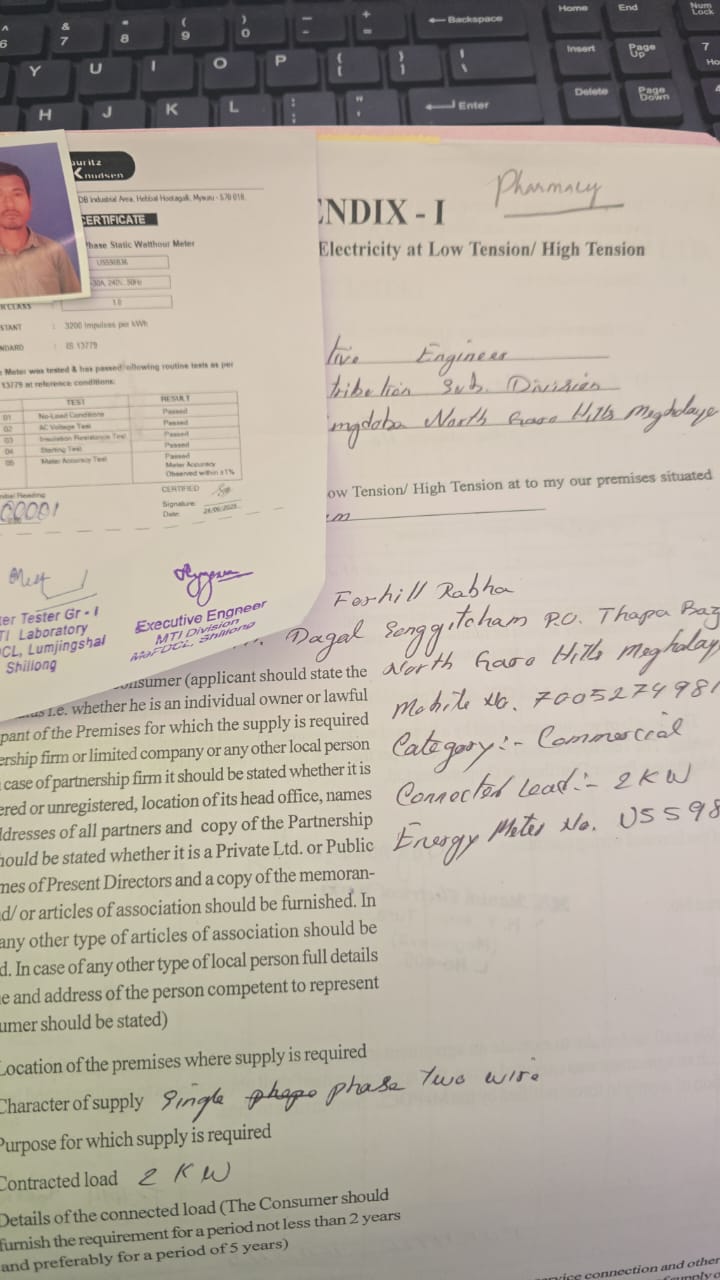 Backspace
Home
End
Num Lock
Insert
Page Up
Delete
Page Down
Enter
Y U I O P
H J K L
Pharmacy
NDIX - I
Electricity at Low Tension/ High Tension
Knudsen
Industrial Area, Hebbal Hootagalli, Mysuru - 570 018.
CERTIFICATE
Phase Static Watthour Meter
240V, 50Hz
1.0
3200 Impulses per kWh
IS 13779
Meter was tested & has passed following routine tests as per
13779 at reference conditions:
TEST RESULT
01 No-Load Conditions Passed
02 AC Voltage Test Passed
03 Insulation Resistance Test Passed
04 Starting Test Passed
05 Meter Accuracy Test Passed
Meter Accuracy
Observed within ±1%
CERTIFIED
Signature:
Date:
00001
Executive Engneer
MTI Division
MePDCL, Shillong
ter Tester Gr - I
TI Laboratory
CL, Lumjingshai
Shillong
tive Engineer
tribution Sub. Division
North Garo Hills Meghalaya
ow Tension/ High Tension at to my our premises situated
Ferhill Rabha
Dagal Songgitcham P.O. Thapa Baz
North Garo Hills Meghalay
Mobile No. 700527498
Category:- Commercial
Connected Load:- 2KW
Energy Meter No. U5598
onsumer (applicant should state the
i.e. whether he is an individual owner or lawful
pant of the Premises for which the supply is required
ership firm or limited company or any other local person
case of partnership firm it should be stated whether it is
ered or unregistered, location of its head office, names
ddresses of all partners and copy of the Partnership
hould be stated whether it is a Private Ltd. or Public
mes of Present Directors and a copy of the memoran-
d/ or articles of association should be furnished. In
any other type of articles of association should be
d. In case of any other type of local person full details
e and address of the person competent to represent
umer should be stated)
Location of the premises where supply is required
Character of supply Single phase Two wire
Purpose for which supply is required
Contracted load 2 KW
Details of the connected load (The Consumer should
furnish the requirement for a period not less than 2 years
and preferably for a period of 5 years)
vice connection and other